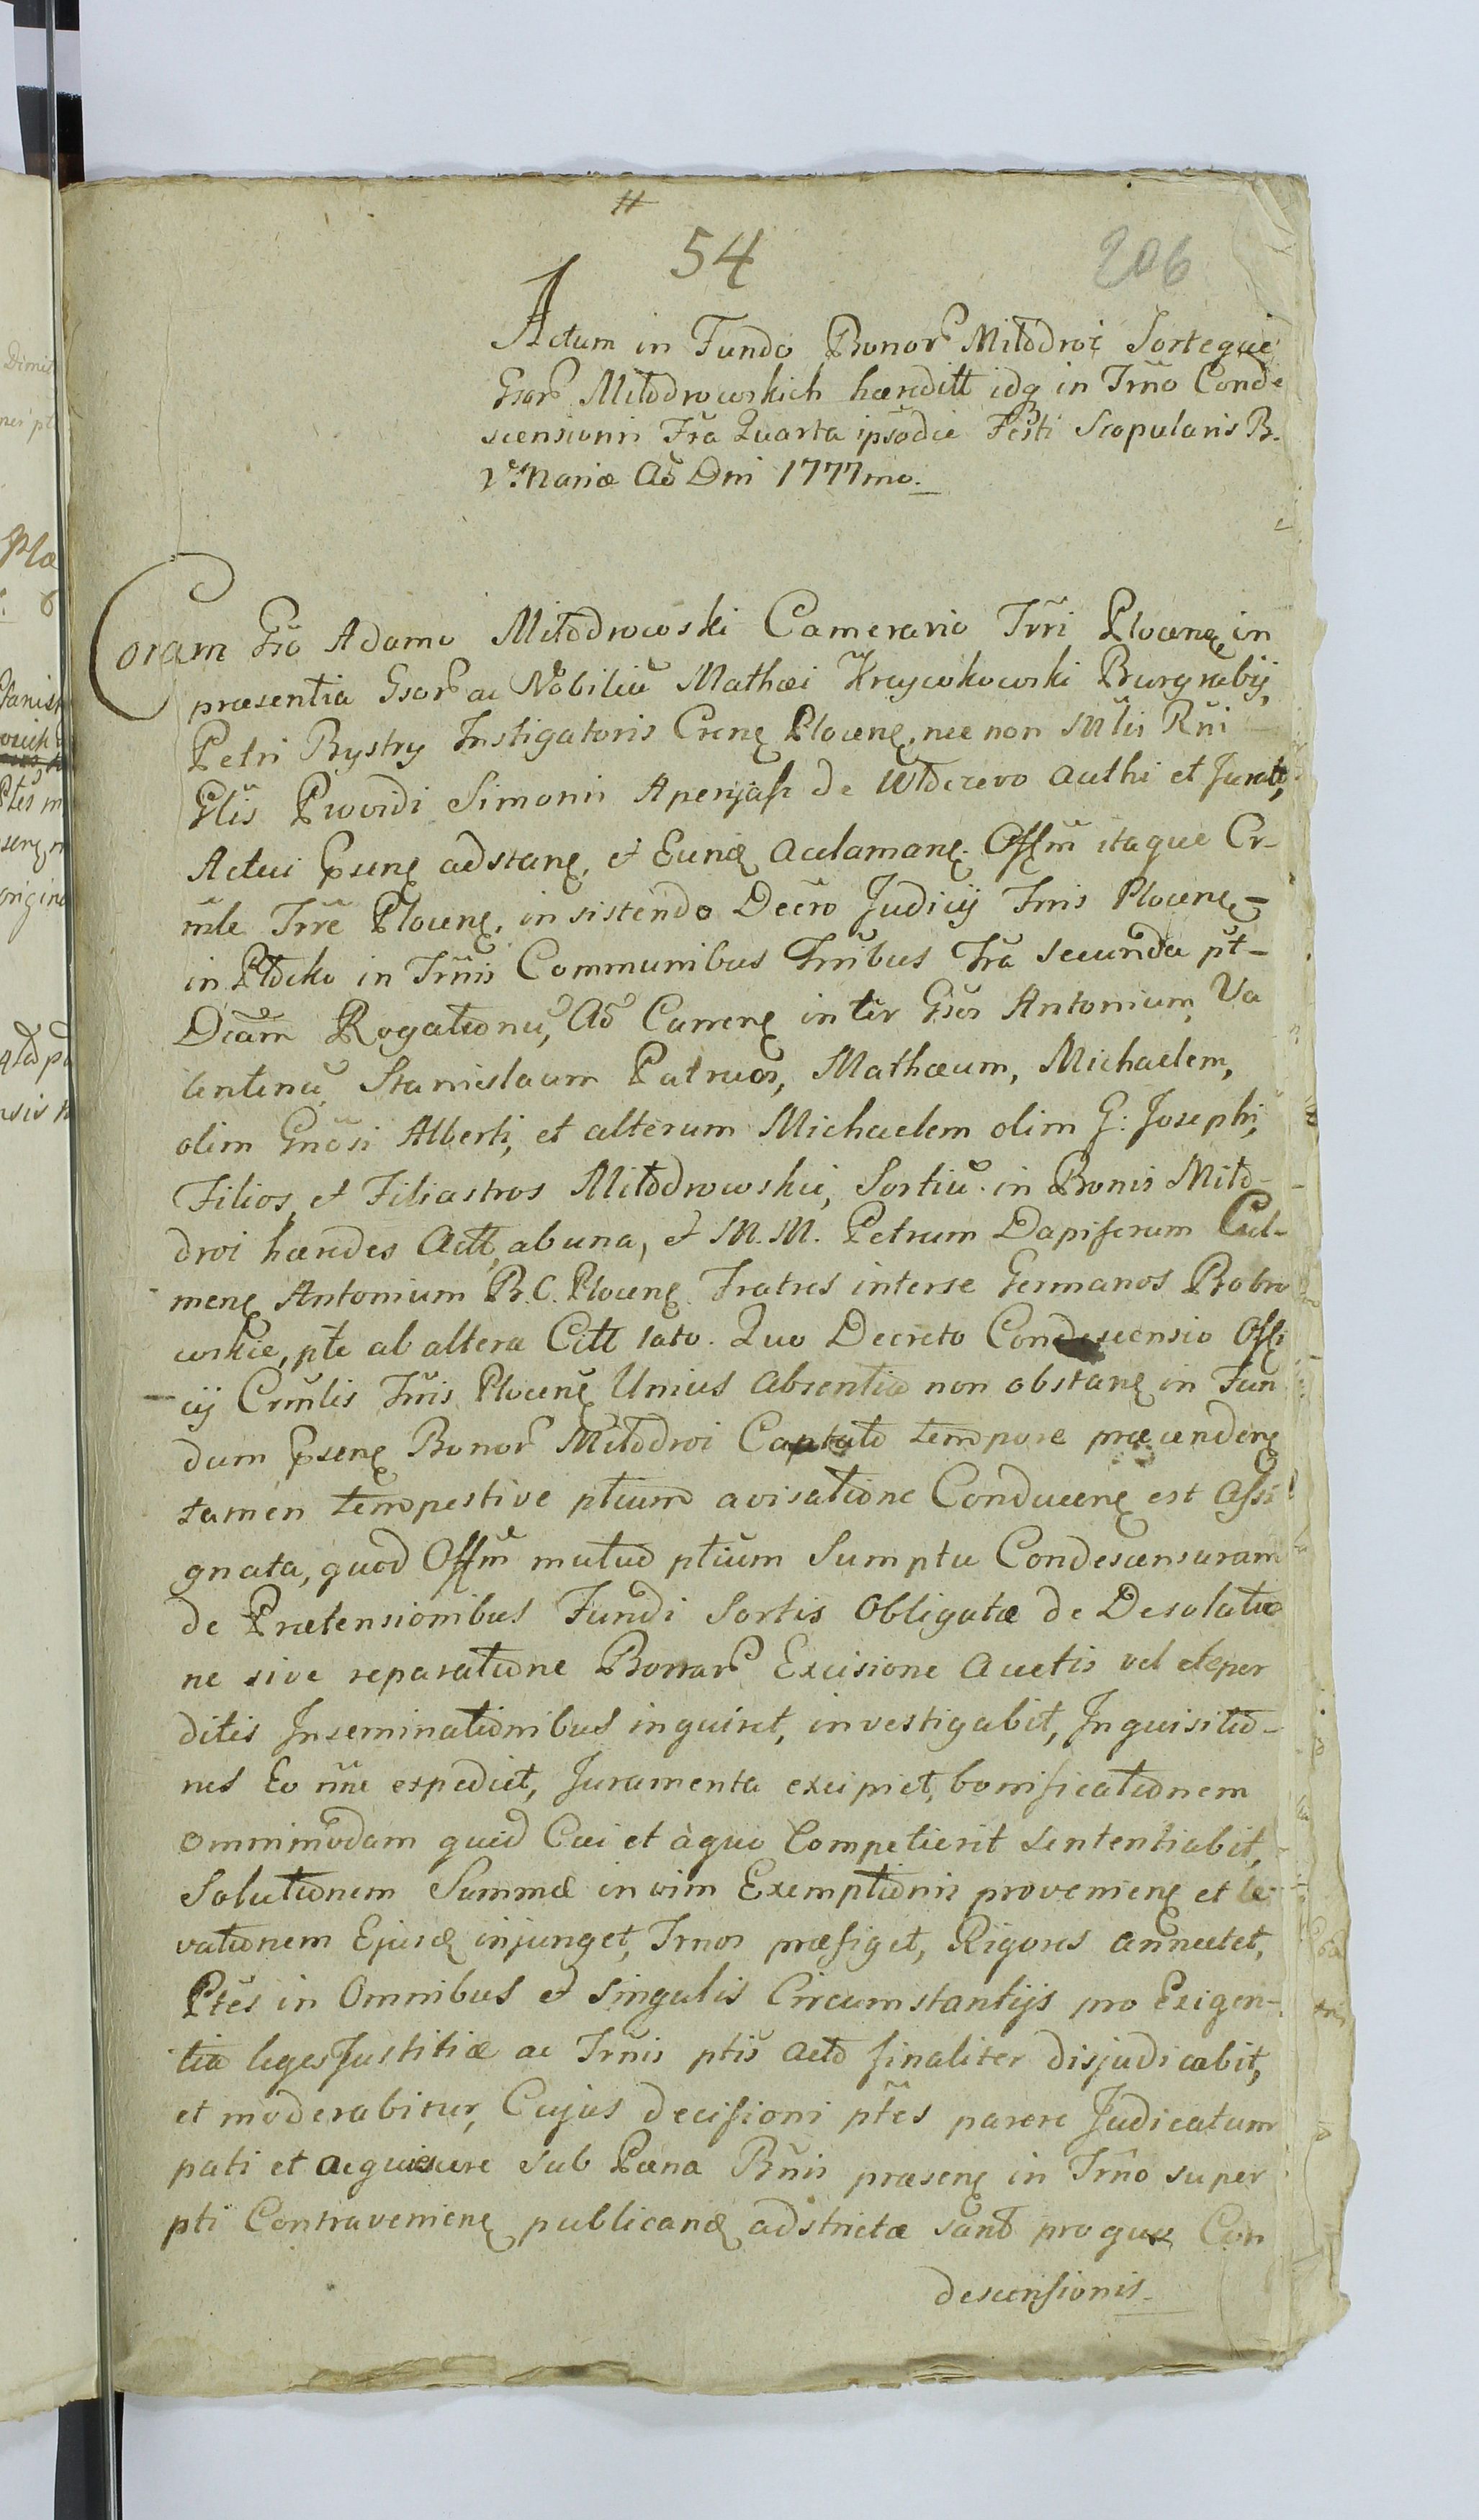 54
206
Actum in Fundo Bonor Miłodroż Sorteque
Gsor Miłodrowskich hæreditt idq in Trno Conde
scensionis Fra Quarta ipsodie Festi Scapularis B.
V. Mariæ Ao Dni 1777mo.
Coram Gso Adamo Miłodrowski Camerario Trri Plocenę in
præsentia Gsor ac Nobiliū Mathæi Krajewkowski Burgrabij,
Petri Bystry Instigatoris Crenę Plocenę, nec non Mlii Rni
Glis Prvordi Simonis de authi et Juratt,
Actui Psenę adstanę, et Eundę acclamanę. Offm itaque Cr-
mle Trre Plocenę, insistendo Decro Judicij Trris Plocenę-
in Płocko in Trmis Communibus Trribus Fra secunda pt-
Dcam Rogationū, Ao Currenę inter Gsos Antonium, Va
lentinū, Stanislaum Patruos, Mathæum, Michaelem,
olim Gnosi Alberti, et alterum Michaelem olim G: Josephi,
Filios, et Filiastros Miłodrowskie, Sortiū in Bonis Miło-
droż hærdes Actt, ab una, et M. M. Petrum Dapiferum Cul-
menę Antonium B. C. Plocenę Fratres interse Germanos Bobro
wskie, pte ab altera Citt lato. Quo Decreto Condescensio Offi
cij Crmlis Trris Plocenę Unius absentia non obstanę in Fun
dum Psenę Bonor Miłodroż Captato tempore præcendenę
tamen tempestive ptium avisatione Conducenę est Assi
gnata, quod Offm mutuo ptium Sumptu Condescensuram
de Prætensionibus Fundi Sortis Obligatæ de Desolatio
ne sive reparatione Borrar Excisione Auctis vel deper
ditis Inseminationibus inquiret, investigabit, Inquisitio-
nes Eo nne expediet, Juramenta excipiet, bonificationem
Omnimodam quid Cui et àquo Competierit sententiabit,
Solutionem Summæ in vim Exemptionis provenienę et le-
vationem Ejusdę injunget, Trnos præfiget, Rigores annectet,
Ptes in Omnibus et singulis Circumstantijs pro Exigen-
tia leges Justitiæ ac Trnis ptis acto finaliter disjudicabit,
et moderabitur, Cujus decisioni ptes parere Judicatum
pati et acquiescere sub Pæna Bnis præsenę in Trno super
pti Contravenienę publicandę adstrictæ sunt pro qua Con
descensionis